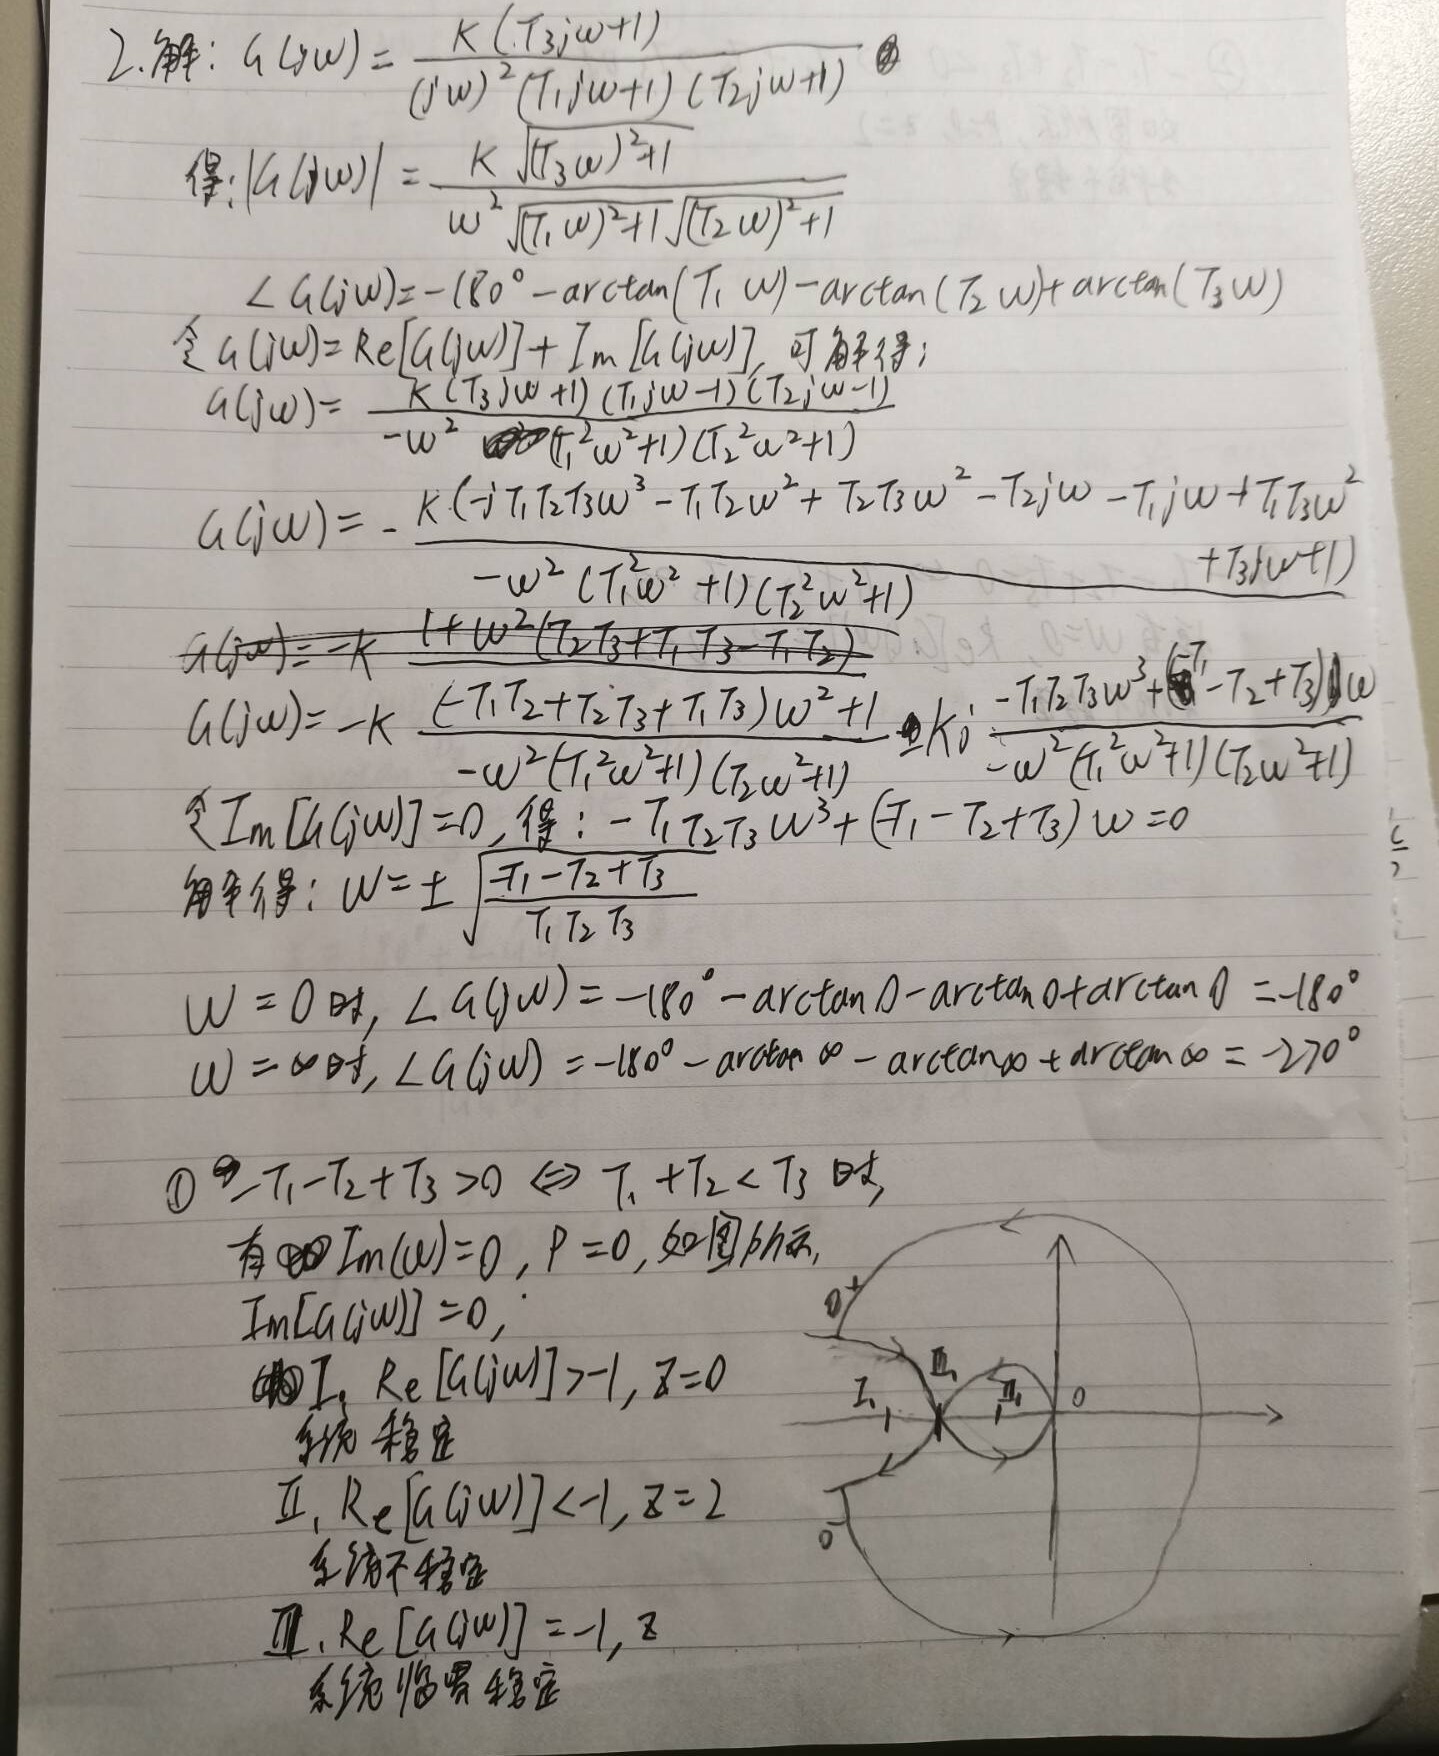 2.解: G(jω) = K(T₃jω+1) / (jω)²(T₁jω+1)(T₂jω+1)
得: |G(jω)| = K√((T₃ω)²+1) / ω²√((T₁ω)²+1)√((T₂ω)²+1)
∠G(jω)=-180°-arctan(T₁ω)-arctan(T₂ω)+arctan(T₃ω)
令G(jω)=Re[G(jω)]+Im[G(jω)], 可解得;
G(jω)= K(T₃jω+1)(T₁jω-1)(T₂jω-1) / -ω²(T₁²ω²+1)(T₂²ω²+1)
G(jω)= - K(-jT₁T₂T₃ω³-T₁T₂ω²+T₂T₃ω²-T₂jω-T₁jω+T₁T₃ω²+T₃jω+1) / -ω²(T₁²ω²+1)(T₂²ω²+1)
G(jω)=-K 1+ω²(T₂T₃+T₁T₃-T₁T₂)
G(jω)=-K (-T₁T₂+T₂T₃+T₁T₃)ω²+1 / -ω²(T₁²ω²+1)(T₂ω²+1) -Kj -T₁T₂T₃ω³+(-T₁-T₂+T₃)ω / -ω²(T₁²ω²+1)(T₂ω²+1)
令Im[G(jω)]=0, 得: -T₁T₂T₃ω³+(-T₁-T₂+T₃)ω=0
解得: ω=±√(-T₁-T₂+T₃ / T₁T₂T₃)
ω=0时, ∠G(jω)=-180°-arctan0-arctan0+arctan0=-180°
ω=∞时, ∠G(jω)=-180°-arctan∞-arctan∞+arctan∞=-270°
① -T₁-T₂+T₃>0 ⇔ T₁+T₂<T₃时,
有Im(ω)=0, P=0, 如图所示,
Im[G(jω)]=0,
I. Re[G(jω)]>-1, Z=0
系统稳定
II. Re[G(jω)]<-1, Z=2
系统不稳定
III. Re[G(jω)]=-1, Z
系统临界稳定
0⁺
III.
I.
II.
0
0⁻